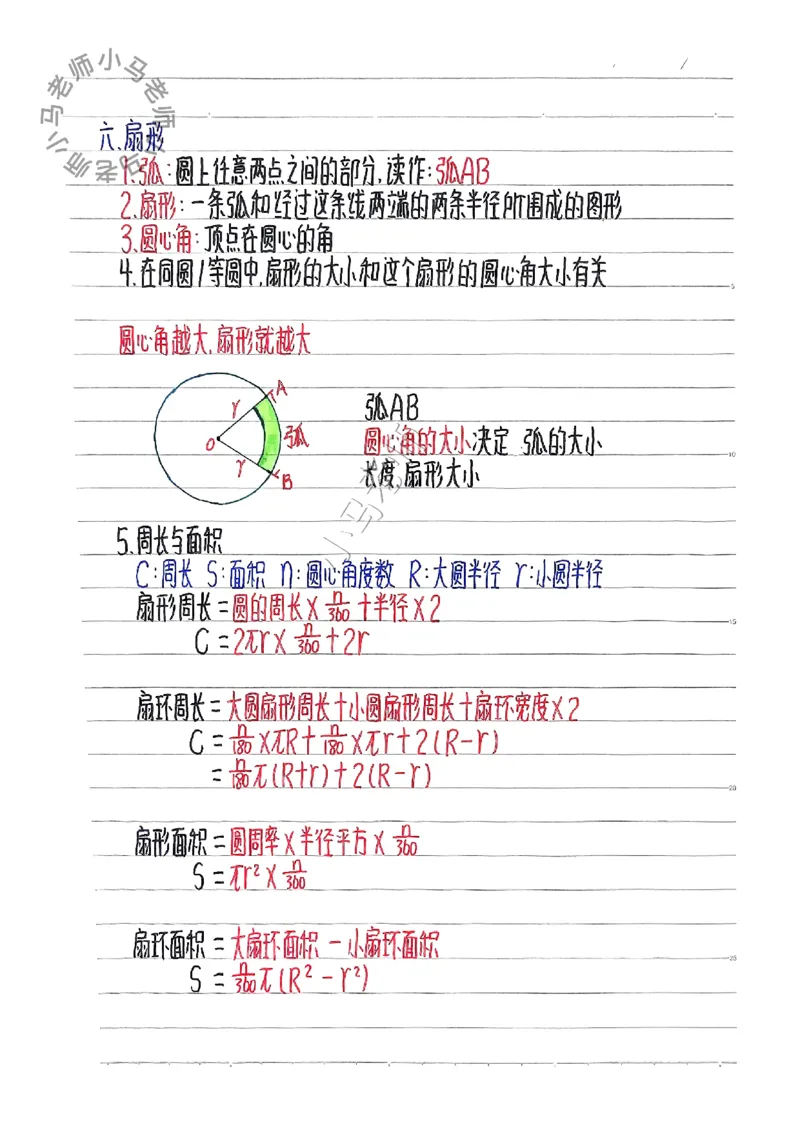 小马老师小马老师小马老师
六.扇形
1.弧:圆上任意两点之间的部分,读作:弧AB
2.扇形:一条弧和经过这条线两端的两条半径所围成的图形
3.圆心角:顶点在圆心的角
4.在同圆/等圆中,扇形的大小和这个扇形的圆心角大小有关
圆心角越大,扇形就越大
A
r
O
弧
r
B
弧AB
圆心角的大小决定 弧的大小
长度,扇形大小
小马老师
5.周长与面积
C:周长 S:面积 n:圆心角度数 R:大圆半径 r:小圆半径
扇形周长=圆的周长×n/360+半径×2
C=2πr×n/360+2r
扇环周长=大圆扇形周长+小圆扇形周长+扇环宽度×2
C=n/180×πR+n/180×πr+2(R-r)
=n/180π(R+r)+2(R-r)
扇形面积=圆周率×半径平方×n/360
S=πr²×n/360
扇环面积=大扇环面积-小扇环面积
S=n/360π(R²-r²)
5
10
15
20
25